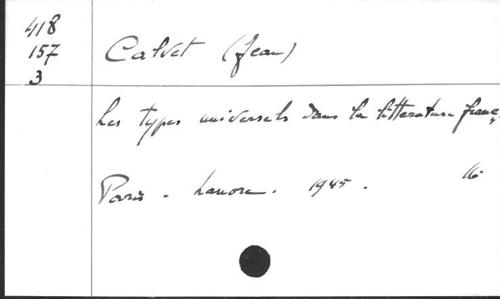 418
157
3
Calvet (Jean)
Les types universels dans la littérature franç.
Paris - Lanore. 1945. 16